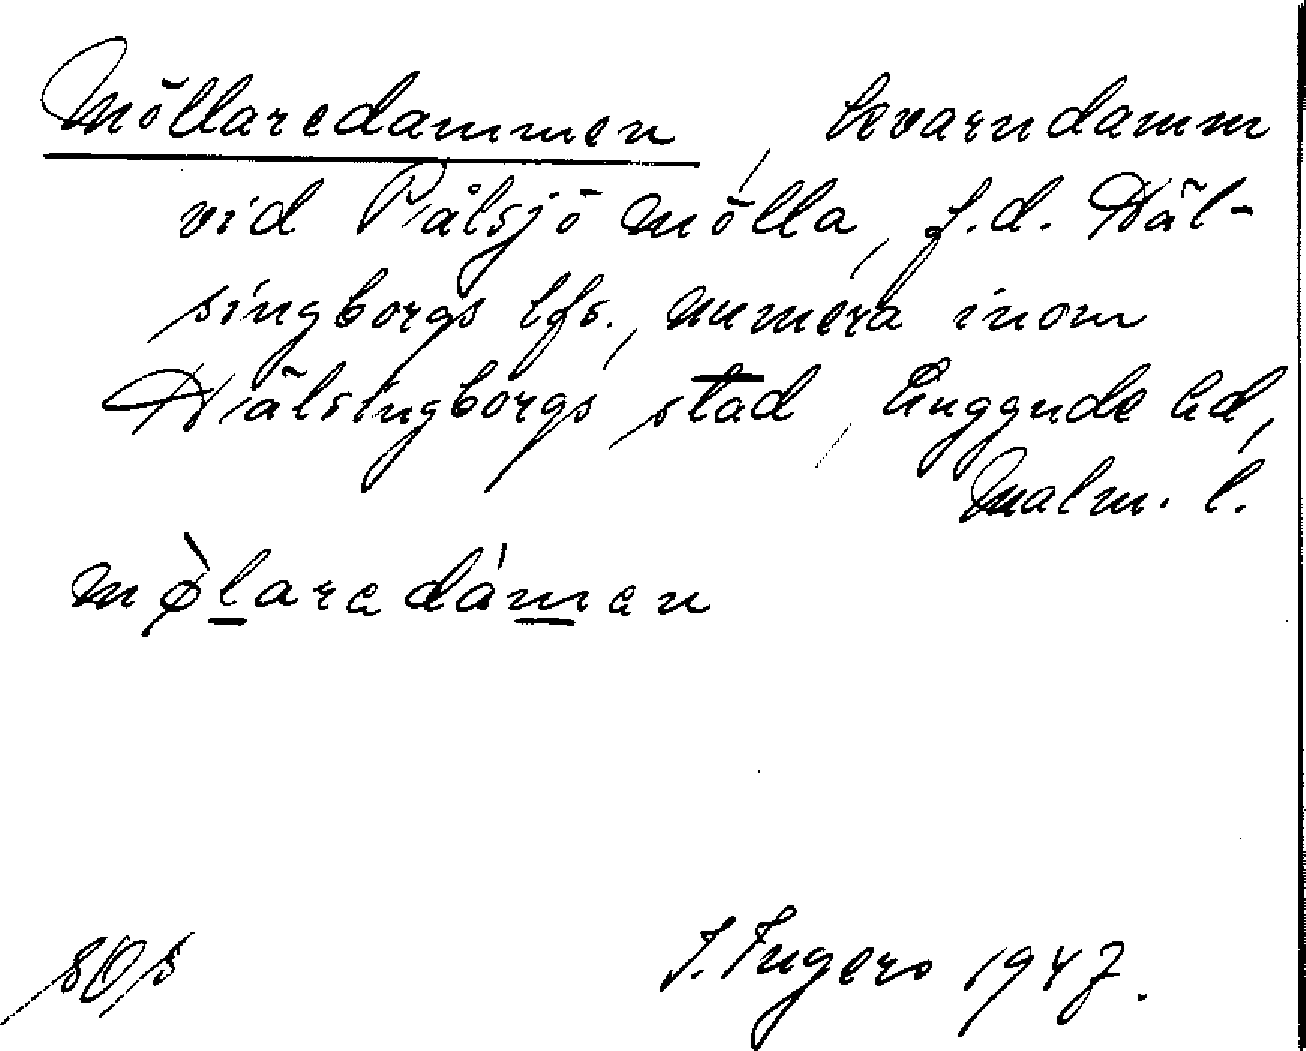 Möllaredammen, kvarndamm
vid Pålsjö mölla, f.d. Häl-
singborgs lfs., numera inom
Hälsingborgs stad, Luggude hd,
Malm. l.
mø̀laredámen
SOS
I. Ingers 1947.